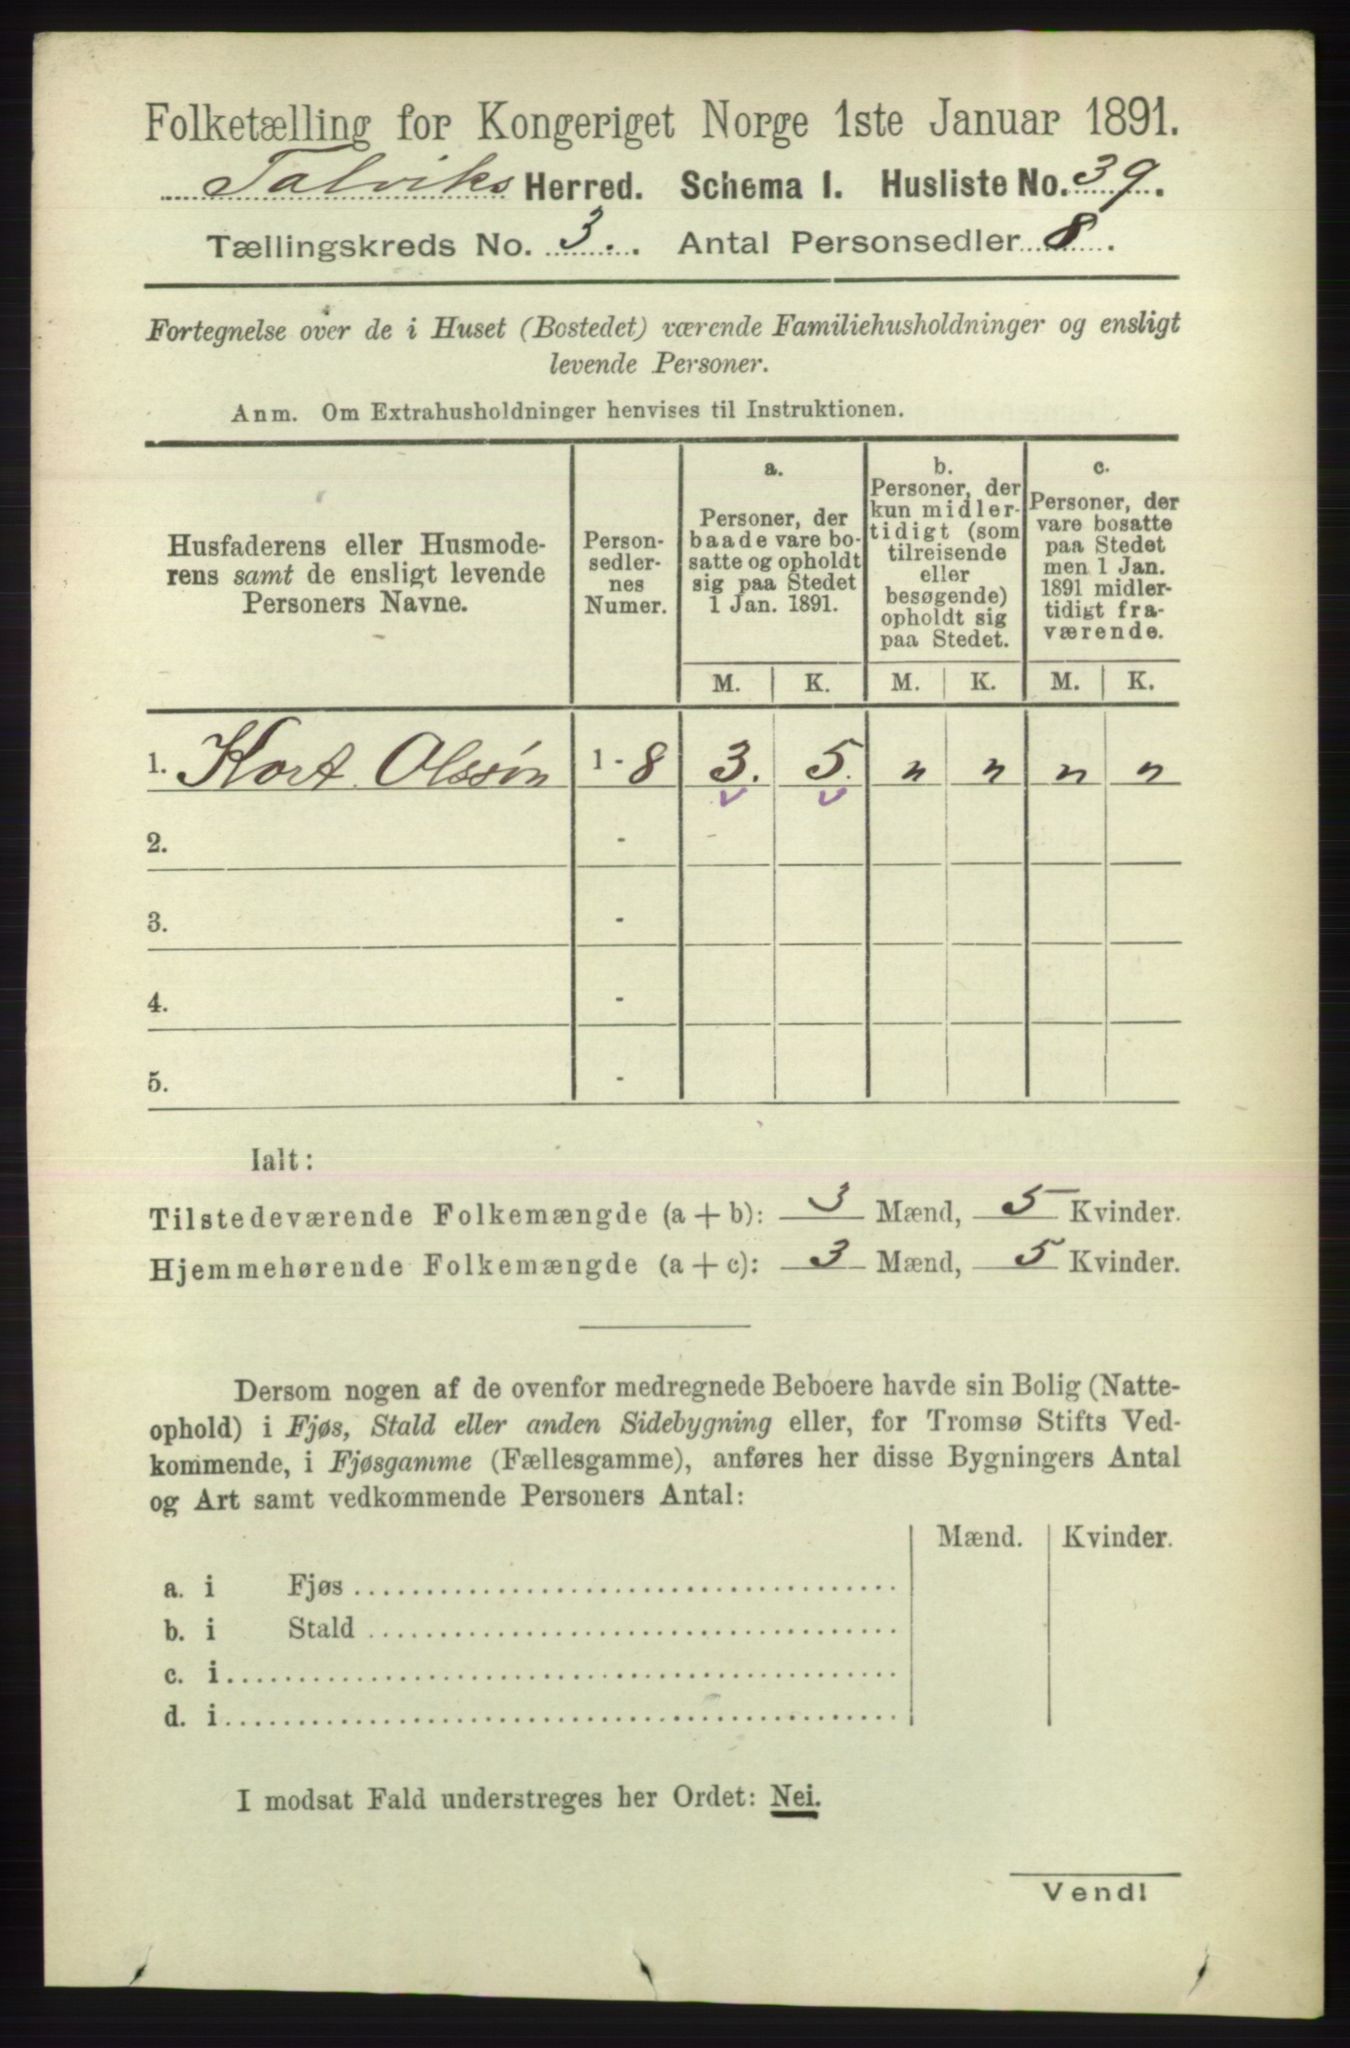 Folketælling for Kongeriget Norge 1ste Januar 1891.
Talviks Herred. Schema I. Husliste No. 39.
Tællingskreds No. 3. Antal Personsedler 8.
Fortegnelse over de i Huset (Bostedet) værende Familiehusholdninger og ensligt
levende Personer.
Anm. Om Extrahusholdninger henvises til Instruktionen.
Husfaderens eller Husmode-
rens samt de ensligt levende
Personers Navne.
Person-
sedler-
nes
Numer.
a.
Personer, der
baade vare bo-
satte og opholdt
sig paa Stedet
1 Jan. 1891.
b.
Personer, der
kun midler-
tidigt (som
tilreisende
eller
besøgende)
opholdt sig
paa Stedet.
c.
Personer, der
vare bosatte
paa Stedet
men 1 Jan.
1891 midler-
tidigt fra-
værende.
M. K. M. K. M. K.
1. Kort Olssøn 1 - 8 3. 5. " " " "
2. -
3. -
4. -
5. -
Ialt:
Tilstedeværende Folkemængde (a + b): 3 Mænd, 5 Kvinder.
Hjemmehørende Folkemængde (a + c): 3 Mænd, 5 Kvinder.
Dersom nogen af de ovenfor medregnede Beboere havde sin Bolig (Natte-
ophold) i Fjøs, Stald eller anden Sidebygning eller, for Tromsø Stifts Ved-
kommende, i Fjøsgamme (Fællesgamme), anføres her disse Bygningers Antal
og Art samt vedkommende Personers Antal:
Mænd. Kvinder.
a. i Fjøs
b. i Stald
c. i
d. i
I modsat Fald understreges her Ordet: Nei.
Vend!